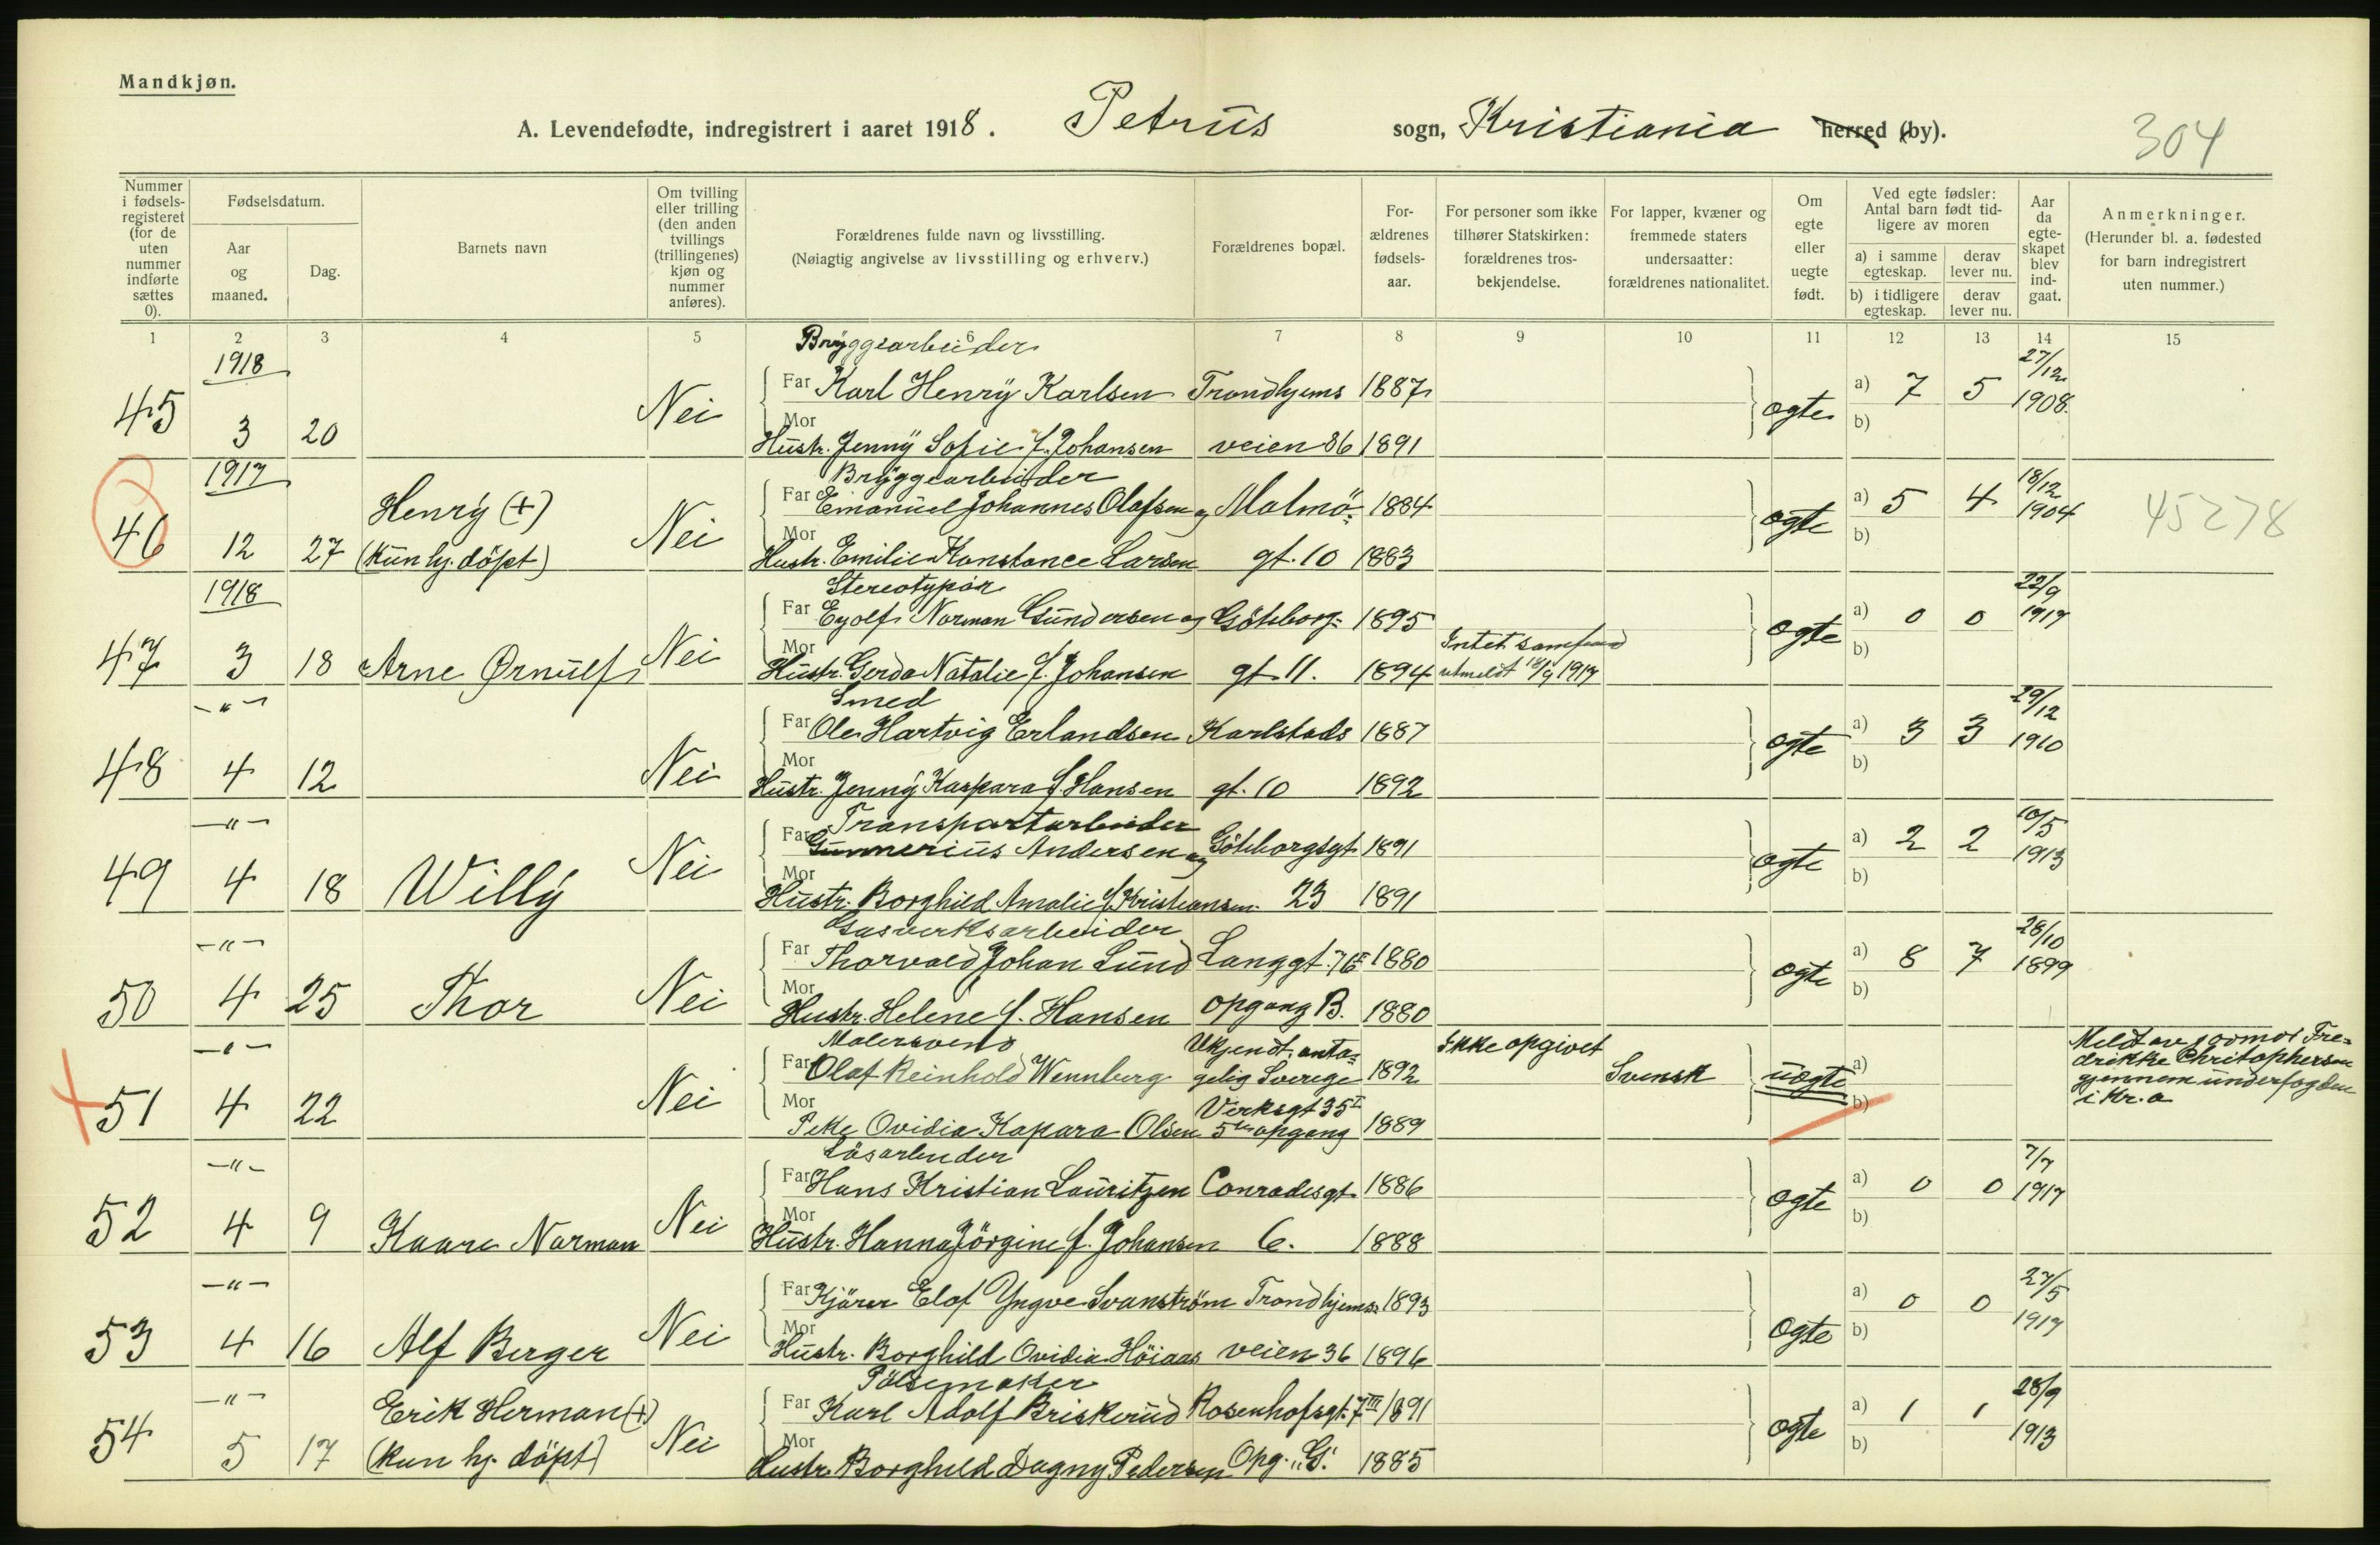 Mandkjøn.
A. Levendefødte, indregistrert i aaret 1918. Petrus sogn, Kristiania herred (by).
304
Nummer i fødsels-registeret (for de uten nummer indførte sættes 0).
Fødselsdatum.
Aar og maaned.
Dag.
Barnets navn
Om tvilling eller trilling (den anden tvillings (trillingenes) kjøn og nummer anføres).
Forældrenes fulde navn og livsstilling.
(Nøiagtig angivelse av livsstilling og erhverv.)
Forældrenes bopæl.
For-ældrenes fødsels-aar.
For personer som ikke tilhører Statskirken: forældrenes tros-bekjendelse.
For lapper, kvæner og fremmede staters undersaatter: forældrenes nationalitet.
Om egte eller uegte født.
Ved egte fødsler: Antal barn født tid-ligere av moren
a) i samme egteskap.
derav lever nu.
b) i tidligere egteskap.
derav lever nu.
Aar da egte-skapet blev ind-gaat.
Anmerkninger.
(Herunder bl. a. fødested for barn indregistrert uten nummer.)
1 2 3 4 5 6 7 8 9 10 11 12 13 14 15
1918 Bryggearbeider 27/12
Far Karl Henry Karlsen Trondhjems 1887 a) 7 5 1908
45 3 20 Nei ægte b)
Mor Hustr. Jenny Sofie f. Johansen veien 86 1891
1917 Bryggearbeider 18/12
Henry (+) Far Emanuel Johannes Olafsen og Malmö- 1884 a) 5 4 1904 45278
46 12 27 (kun hj. döpt) Nei ægte b)
Mor Hustr. Emilie Konstance Larsen gt. 10 1883
1918 Stereotypör 22/9
Far Eyolf Norman Gundersen og Göteborg- 1895 a) 0 0 1917
47 3 18 Arne Ørnulf Nei Intet samfund ægte b)
Mor Hustr. Gerda Natalie f. Johansen gt. 11. 1894 utmeldt 1917
-"- Smed 29/12
Far Ole Hartvig Erlandsen Karlstads 1887 a) 3 3 1910
48 4 12 Nei ægte b)
Mor Hustr. Jenny Kaspara f. Hansen gt. 10 1892
-"- Transportarbeider 10/5
Far Gunnerius Andersen og Göteborgsgt 1891 a) 2 2 1913
49 4 18 Willy Nei ægte b)
Mor Hustr. Borghild Amalie f. Kristiansen 23 1891
-"- Gasverksarbeider 28/10
Far Thorvald Johan Lund Langgt. 1880 a) 8 7 1899
50 4 25 Thor Nei ægte b)
Mor Hustr. Helene f. Hansen opgang B. 1880
-"- Malersvend Ukjendt, anta= Ikke opgivet Meldt av jordmor Fre=
Far Olaf Reinhold Wennberg gelig Sverige 1892 Svensk uægte a) drikke Christophersen
51 4 22 Nei Verksgt 35 I b) gjennem underfogden
Mor Pike Ovidia Kapara Olsen 5te opgang 1889 i Kr.a
-"- Løsarbeider 7/7
Far Hans Kristian Lauritzen Conradisgt. 1886 a) 0 0 1917
52 4 9 Kaare Norman Nei ægte b)
Mor Hustr. Hanna Jörgine f. Johansen 6. 1888
-"- 27/5
Far Kjörer Elof Yngve Svanström Trondhjems= 1893 a) 0 0 1917
53 4 16 Alf Berger Nei ægte b)
Mor Hustr. Borghild Ovidia Höiaas veien 36 1896
-"- Pölsemaker 28/9
Erik Herman (+) Far Karl Adolf Briskerud Rosenhofsgt. 7 III 1891 a) 1 1 1913
54 5 17 (kun hj. döpt) Nei ægte b)
Mor Hustr. Borghild Dagny Pedersen Opg. "G". 1885